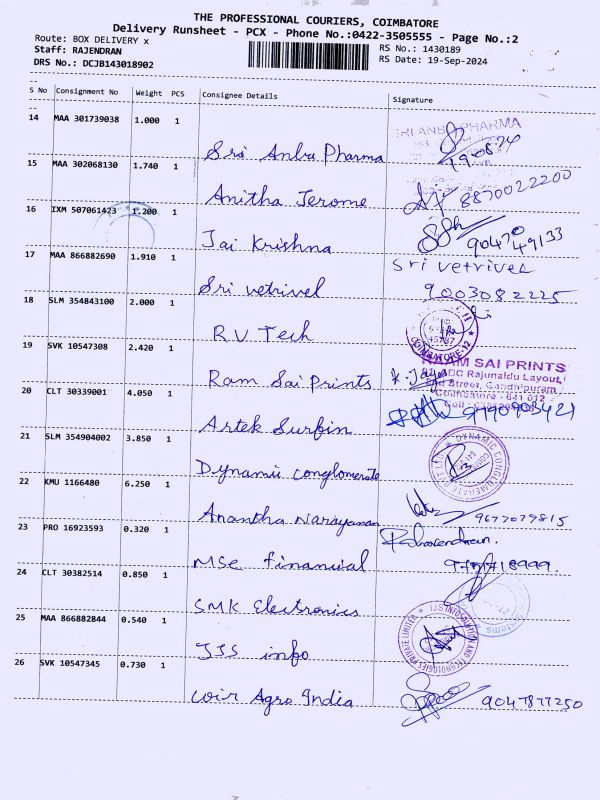 THE PROFESSIONAL COURIERS, COIMBATORE
Delivery Runsheet - PCX - Phone No.:0422-3505555 - Page No.:2
Route: BOX DELIVERY x
RS No.: 1430189
Staff: RAJENDRAN
RS Date: 19-Sep-2024
DRS No.: DCJB143018902
S No Consignment No Weight PCS Consignee Details Signature
14 MAA 301739038 1.000 1
Sri Anbu Pharma
15 MAA 302068130 1.740 1
Anitha Jerome 8870022200
16 IXM 507061423 1.200 1
Jai Krishna 90470 49133
17 MAA 866882690 1.910 1 Sri vetrivel
Sri vetrivel 9003082225
18 SLM 354843100 2.000 1
R.V Tech COIMBATORE-12
19 SVK 10547308 2.420 1
RAAM SAI PRINTS
Rajunaidu Layout,
Street, Gandhipuram
Ram Sai Prints
Coimbatore - 641 012
20 CLT 30339001 4.050 1
Artek Surfin
21 SLM 354904002 3.850 1
Dynamic conglomerate
22 KMU 1166480 6.250 1
Anantha Narayanan 9677079815
23 PRO 16923593 0.320 1
MSC financial
24 CLT 30382514 0.850 1
SMK Electronics
25 MAA 866882844 0.540 1
JJS info
26 SVK 10547345 0.730 1
coir Agro India 9047877250